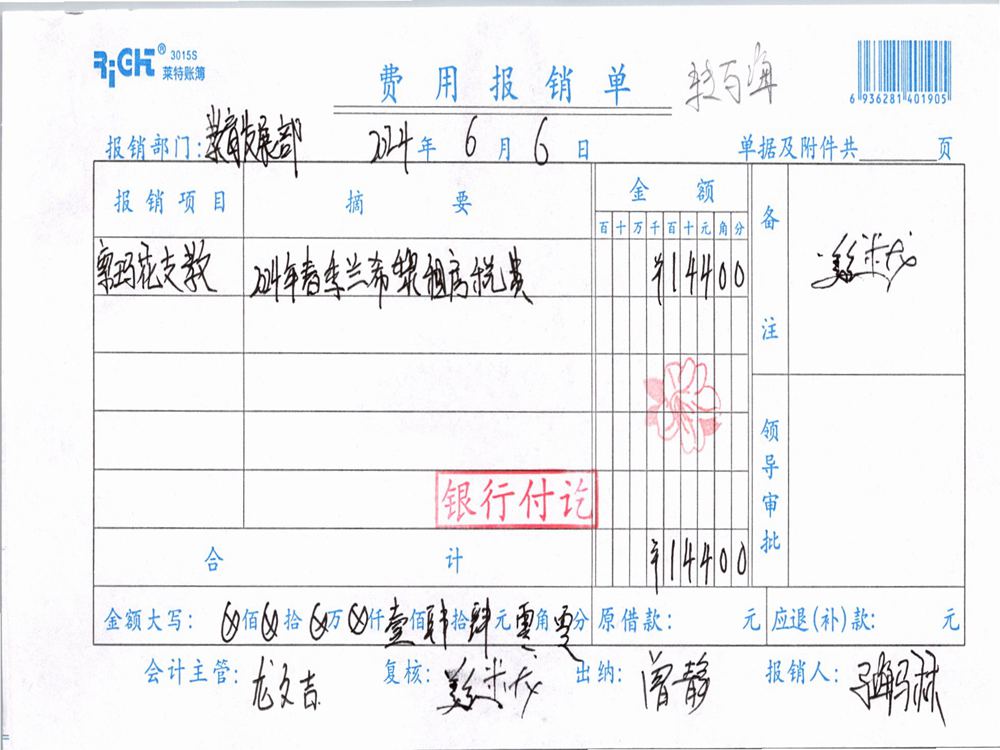 RiCH® 3015S
莱特账簿
费用报销单
6 936281 401905
报销部门: 教育发展部 2024年6月6日 单据及附件共 页
报销项目 摘要 金额 备注
百十万千百十元角分
支教 2024年春季兰希黎租房税费 ¥14400
银行付讫
领导审批
合计 ¥14400
金额大写: ⊗佰⊗拾⊗万⊗仟壹佰肆拾肆元零角零分 原借款: 元 应退(补)款: 元
会计主管: 龙文吉 复核: 出纳: 曾静 报销人: